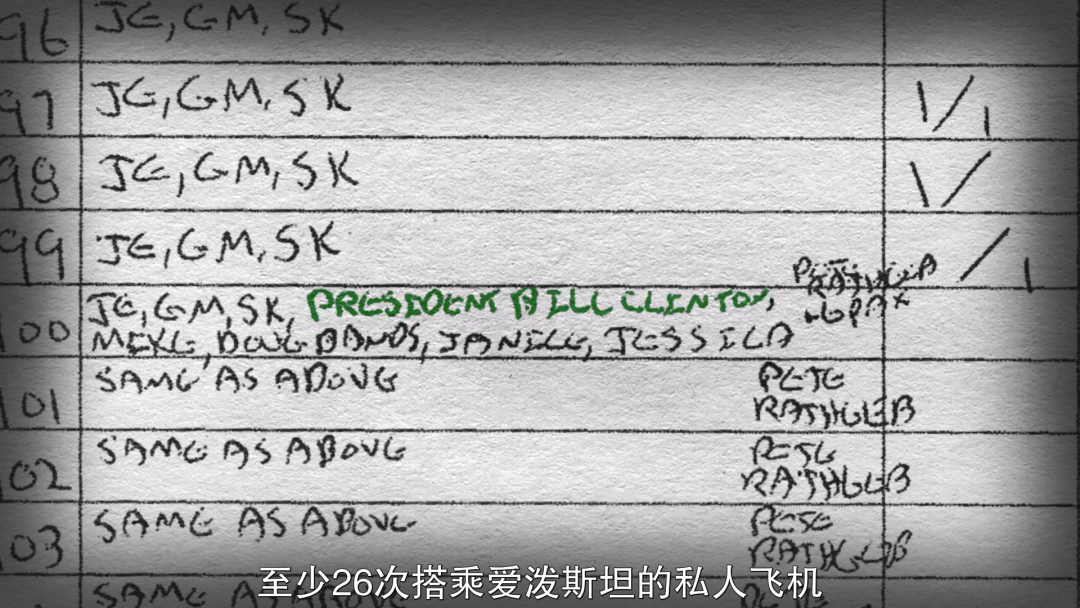 96 JE, GM, SK
97 JE, GM, SK
98 JE, GM, SK
99 JE, GM, SK
100 JE, GM, SK, PRESIDENT BILL CLINTON,
MIKE, DOUG BANDS, JANICE, JESSICA
101 SAME AS ABOVE PETE
RATHGEB
102 SAME AS ABOVE PETE
RATHGEB
103 SAME AS ABOVE PETE
RATHGEB
SAME AS ABOVE
至少26次搭乘爱泼斯坦的私人飞机